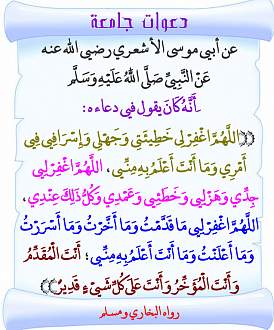 دعوات جامعة
عن أبي موسى الأشعري رضي الله عنه
عَنْ النَّبِيِّ صَلَّى اللهُ عَلَيْهِ وَسَلَّم
أَنَّهُ كَانَ يَقُولُ فِي دعاءه:
((اللَّهُمَّ اغْفِرْ لِي خَطِيئَتِي وَجَهْلِي وَإِسْرَافِي فِي
أَمْرِي وَمَا أَنْتَ أَعْلَمُ بِهِ مِنِّي، اللَّهُمَّ اغْفِرْ لِي
جِدِّي وَهَزْلِي وَخَطَئِي وَعَمْدِي وَكُلُّ ذَلِكَ عِنْدِي،
اللَّهُمَّ اغْفِرْ لِي مَا قَدَّمْتُ وَمَا أَخَّرْتُ وَمَا أَسْرَرْتُ
وَمَا أَعْلَنْتُ وَمَا أَنْتَ أَعْلَمُ بِهِ مِنِّي؛ أَنْتَ الْمُقَدِّمُ
وَأَنْتَ الْمُؤَخِّرُ وَأَنْتَ عَلَى كُلِّ شَيْءٍ قَدِيرٌ))
رواه البخاري ومسلم